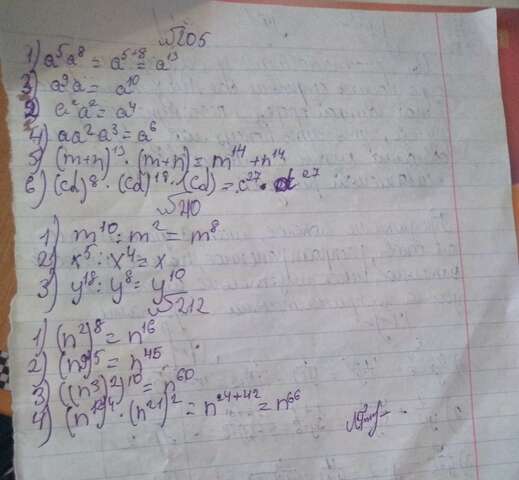 №205
1) a⁵a⁸ = a⁵⁺⁸ = a¹³
3) a⁹a = a¹⁰
2) a²a² = a⁴
4) aa²a³ = a⁶
5) (m+n)¹³ · (m+n) = m¹⁴ + n¹⁴
6) (cd)⁸ · (cd)¹⁸ · (cd) = c²⁷ · d²⁷
№210
1) m¹⁰ : m² = m⁸
2) x⁵ : x⁴ = x
3) y¹⁸ : y⁸ = y¹⁰
№212
1) (n²)⁸ = n¹⁶
2) (n⁹)⁵ = n⁴⁵
3) ((n³)²)¹⁰ = n⁶⁰
4) (n¹²)⁴ · (n²¹)² = n²⁴⁺⁴² = n⁶⁶